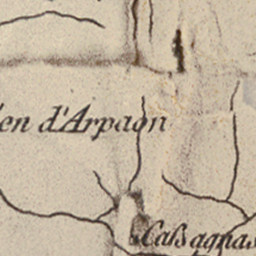 en d'Arpaon
Caßagnas